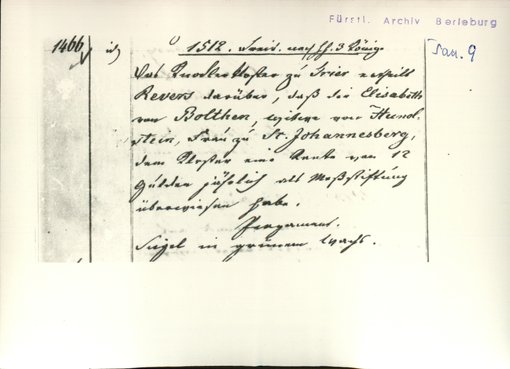 Fürstl. Archiv Berleburg
1466
1512. Freit. nach hl. 3 König.
Jan. 9
Das Kloster zu Trier ertheilt
Revers darüber, daß die Elisabeth
von Bolthen, witwe von Hund
stein, Frau zu St. Johannesberg,
dem Kloster eine Rente von 12
Gulden jährlich als Meßstiftung
überwiesen habe.
Pergament.
Siegel in grünem Wachs.